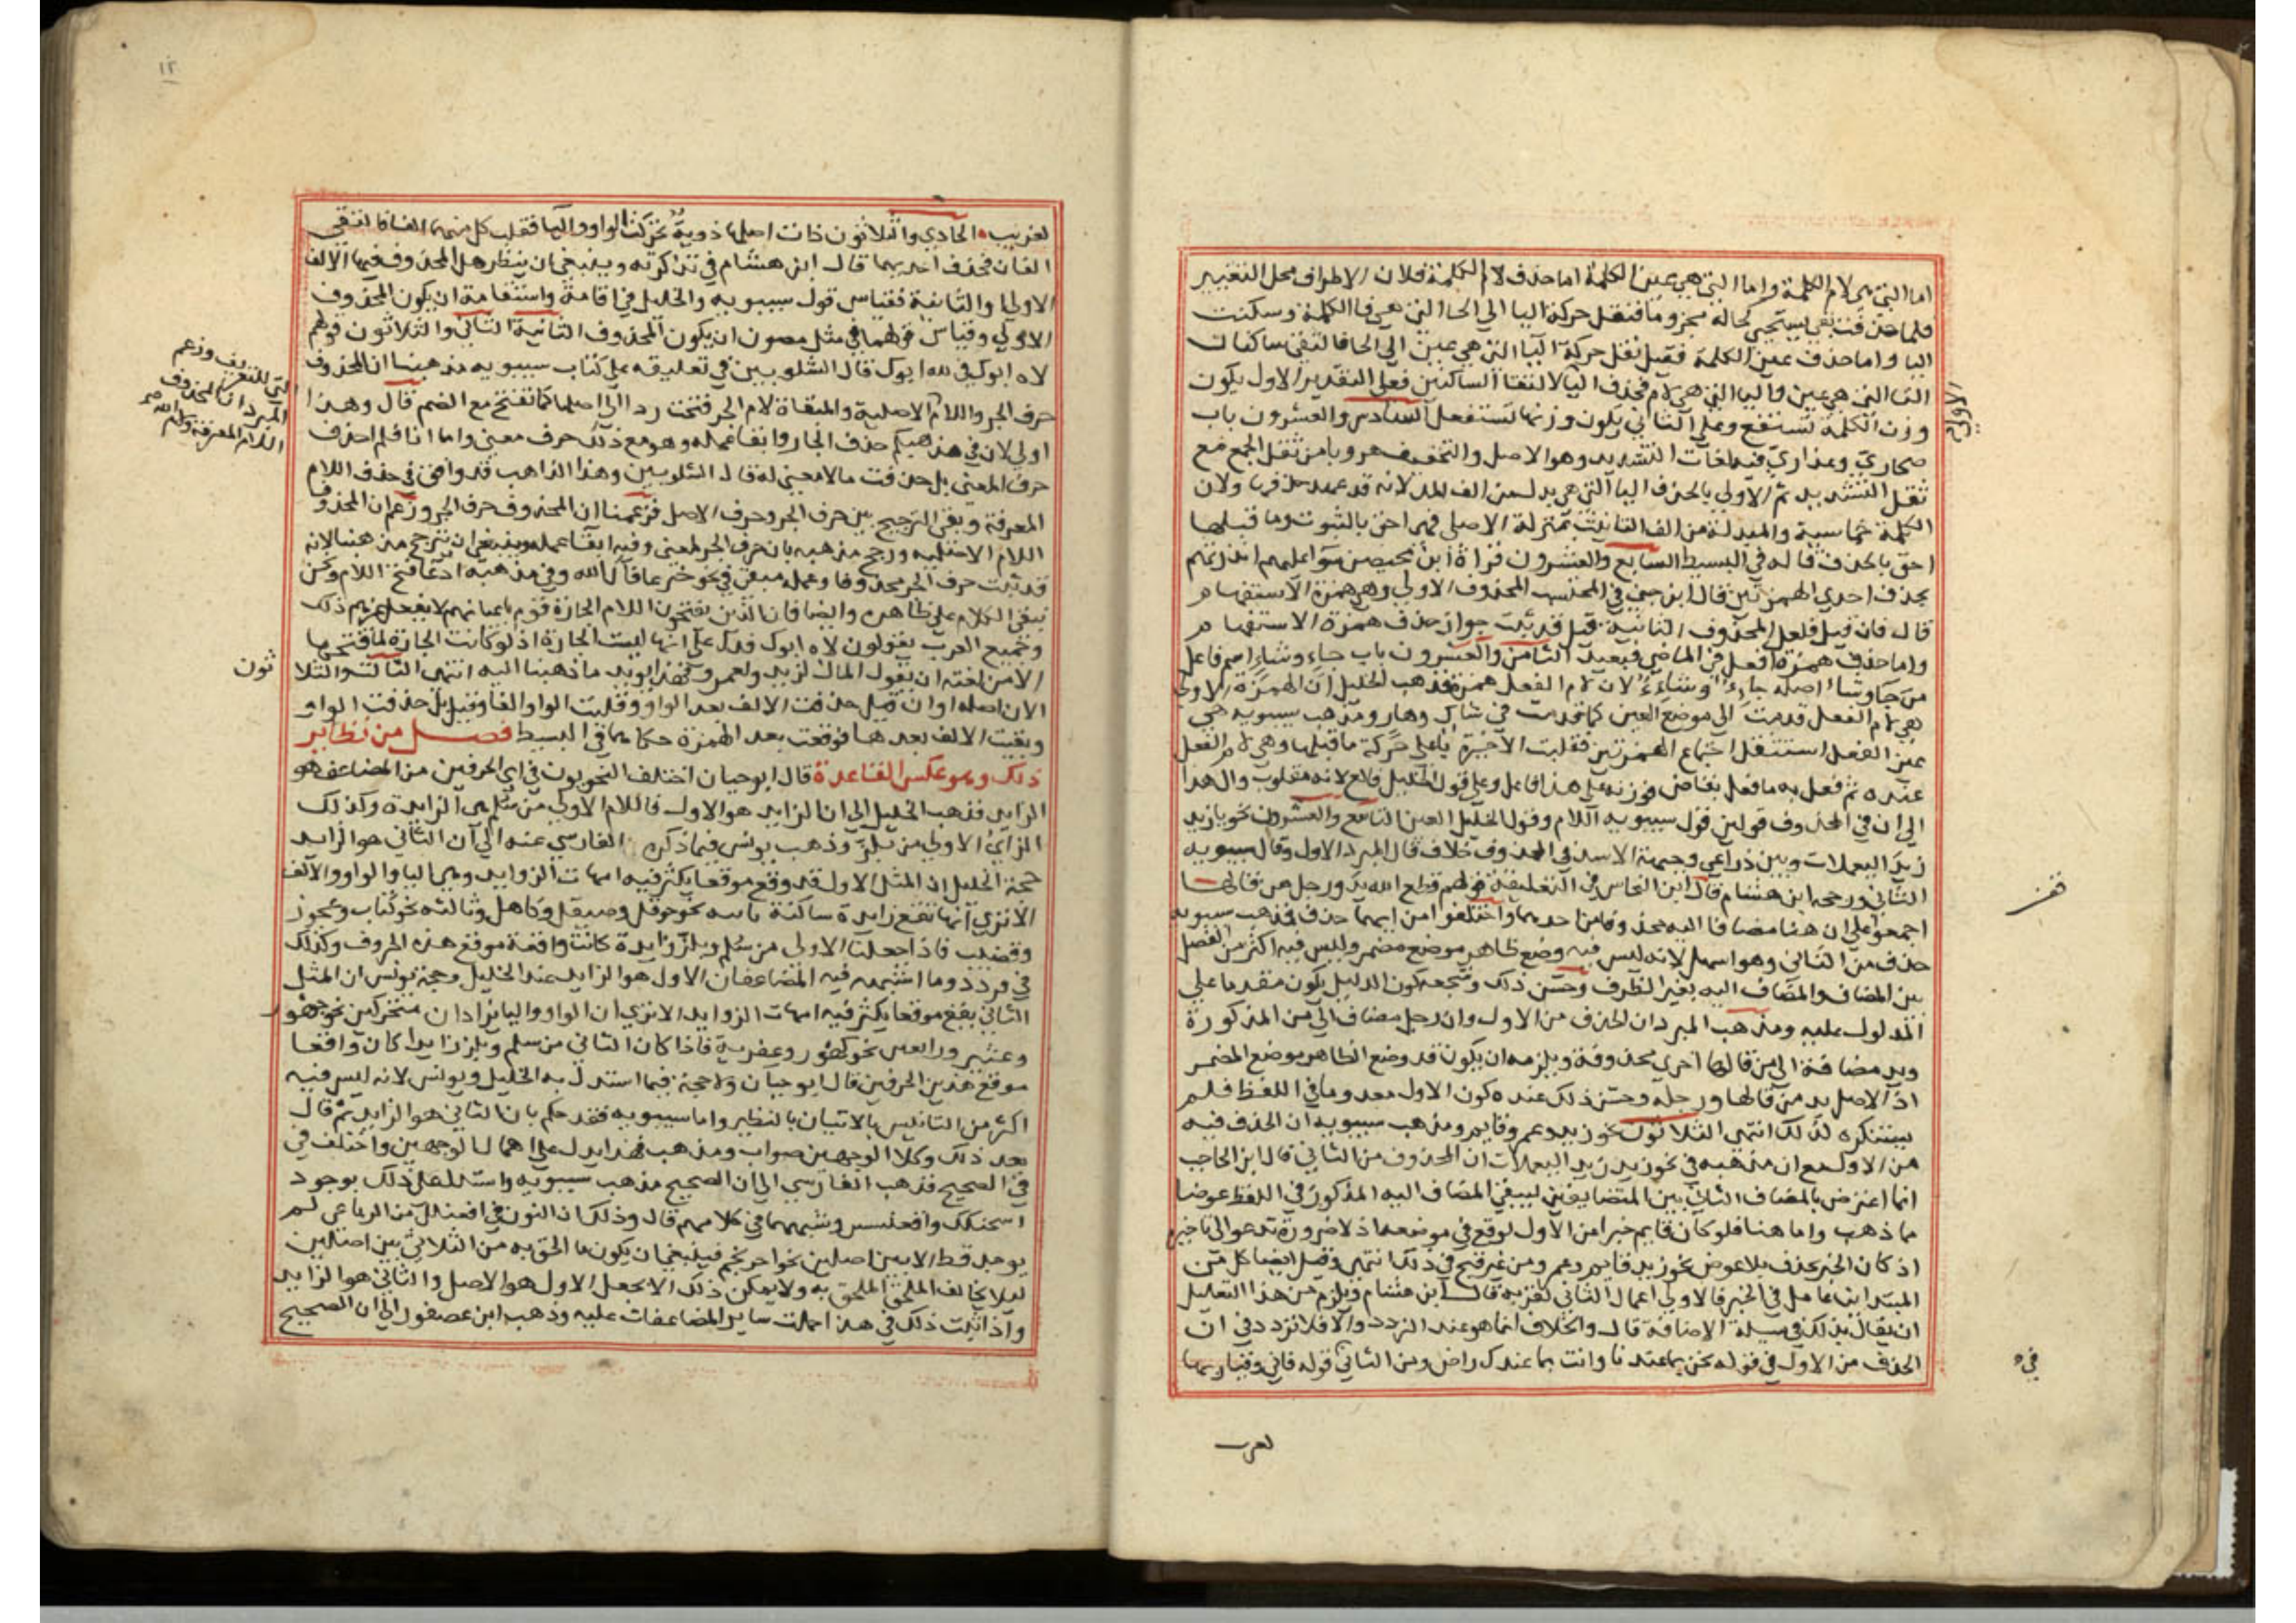 اما التي هي لام الكلمة واما التي هي عين الكلمة اما حذف لام الكلمة فلان الاطراف محل التغيير
فلما حذفت بقي يستحي كحاله مجزوما فنقل حركة اليا الي الحا التي هي فا الكلمة وسكنت
اليا واما حذف عين الكلمة فقيل نقل حركة اليا التي هي عين الي الحا فالتقي ساكنان
اليا التي هي عين واليا التي هي لام فحذف اليا لالتقا الساكنين فعلي التقدير الاول يكون
الاولي
وزن الكلمة تستفع وعلي الثاني يكون وزنها تستفعل السادس والعشرون باب
صحاري وعذاري فيه لغات التشديد وهو الاصل والتخفيف هروبا من ثقل الجمع مع
ثقل التشديد ثم الاولي بالحذف اليا التي هي بدل من الف المد لانه قد عهد حذفها ولان
الكلمة خماسية والمبدلة من الف التانيث بمنزلة الاصلي فهي احق بالثبوت وما قبلها
احق بالحذف قاله في البسيط السابع والعشرون قراة ابن محيصن سوا عليهم انذرتهم
بحذف احدي الهمزتين قال ابن جني في المحتسب المحذوف الاولي وهي همزة الاستفهام
قال فان قيل فلعل المحذوف الثانية قيل قد ثبت جواز حذف همزة الاستفهام
واما حذف همزة افعل في الماضي فبعيد الثامن والعشرون باب جاء وشاء اسم فاعل
من جا وشا اصله جايء وشايء لان لام الفعل همزة فذهب الخليل ان الهمزة الاولي
هي لام الفعل قدمت الي موضع العين كما قدمت في شاك وهار ومذهب سيبويه هي
عين الفعل استثقل اجتماع الهمزتين فقلبت الاخيرة ياء علي حركة ما قبلها وهي لام الفعل
عنده ثم فعل به ما فعل بقاض فوزنه علي هذا فاعل وعلي قول الخليل فالع لانه مقلوب وال هذا
الي ان في المحذوف قولين قول سيبويه اللام وقول الخليل العين التاسع والعشرون نحو يا زيد
زيد اليعملات وبين ذراعي وجبهة الاسد في المحذوف خلاف قال المبرد الاول وقال سيبويه
الثاني ورجحه ابن هشام قال ابن النحاس في التعليقة قولهم قطع الله يد ورجل من قالها
اجمعوا علي ان هنا مضافا اليه محذوفا من احدهما واختلفوا من ايهما حذف فذهب سيبويه
حذف من الثاني وهو اسهل لانه ليس فيه وضع ظاهر موضع مضمر وليس فيه اكثر من الفصل
بين المضاف والمضاف اليه بغير الظرف وحسن ذلك وشجعه كون الدليل يكون مقدما علي
المدلول عليه ومذهب المبرد ان الحذف من الاول وان رجل مضاف الي من المذكورة
ويد مضافة الي من قالها اخري محذوفة ويلزمه ان يكون قد وضع الظاهر موضع المضمر
اذ الاصل يد من قالها ورجله وحسن ذلك عنده كون الاول معدوما في اللفظ فلم
يستنكره لذلك انتهي الثلاثون نحو زيد وعمرو قايم ومذهب سيبويه ان الحذف فيه
من الاول مع ان مذهبه في نحو زيد زيد اليعملات ان المحذوف من الثاني قال ابن الحاجب
انما اعترض بالمضاف الثاني بين المتضايفين ليبقي المضاف اليه المذكور في اللفظ عوضا
ما ذهب واما هنا فلو كان قايم خبرا من الاول لوقع في موضعه اذ لا ضرورة تدعو الي تاخيره
اذ كان الخبر يحذف بلا عوض نحو زيد قايم وعمرو من غير قبح في ذلك انتهي وقيل ايضا كل من
المبتداين عامل في الخبر فالاولي اعمال الثاني لقربه قال ابن هشام ويلزم من هذا التعليل
ان يقال بذلك في مسيلة الاضافة قال والخلاف انما هو عند التردد والا فلا تردد في ان
الحذف من الاول في قوله نحن بما عندنا وانت بما عندك راض ومن الثاني قوله فاني وقيار بها
في
لغريب
١٢
لغريب الحادي والثلاثون ذات اصلها ذوية تحركت الواو واليا فقلب كل منهما الفا فالتقي
الفان فحذف احديهما قال ابن هشام في تذكرته وينبغي ان ينظر هل المحذوف فيها الالف
الاولي او الثانية فقياس قول سيبويه والخليل في اقامة واستقامة ان يكون المحذوف
الاولي وقياس قولهما في مثل مصون ان يكون المحذوف الثانية الثاني والثلاثون قولهم
لاه ابوك في لله ابوك قال الشلوبين في تعليقه علي كتاب سيبويه مذهبنا ان المحذوف
التي للتعريف وزعم
المبرد ان المحذوف
اللام المعرفة ولام الله
حرف الجر واللام الاصلية والمبقاة لام الجر فتحت ردا الي اصلها كما تفتح مع الضمير قال وهذا
اولي لان في مذهبكم حذف الجار وابقا عمله وهو مع ذلك حرف معني واما انا فلم احذف
حرف المعني بل حذفت ما لا معني له قال الشلوبين وهذا الذاهب قد وافق في حذف اللام
المعرفة وبقي الترجيح بين حرف الجر وحرف الاصل فزعمنا ان المحذوف حرف الجر وزعم ان المحذوف
اللام الاصليه ورجح مذهبه بان حرف الجر لمعني وفيه ابقا عمله وينبغي ان يترجح مذهبنا لانه
قد ثبت حرف الجر محذوفا وعمله مبقي في نحو خير عافاك الله وفي مذهبه ادعا فتح اللام ونحن
نبقي الكلام علي ظاهره وايضا فان الذين يفتحون اللام الجارة قوم باعيانهم لا يفعل غيرهم ذلك
وجميع العرب يقولون لاه ابوك فدل علي انها ليست الجارة اذ لو كانت الجارة لما فتحها
الا من لغته ان يقول المال لزيد ولعمرو فهذا يويد ما ذهبنا اليه انتهي الثالث والثلا
ثون
الان اصله اوان قيل حذفت الالف بعد الواو وقلبت الواو الفا وقيل بل حذفت الواو
وبقيت الالف بعدها فوقعت بعد الهمزة حكاهما في البسيط فصل من نظاير
ذلك وهو عكس القاعدة قال ابو حيان اختلف النحويون في اي الحرفين من المضاعف هو
الزايد فذهب الخليل الي ان الزايد هو الاول فاللام الاولي من سلم هي الزايدة وكذلك
الزاي الاولي من بلز وذهب يونس فيما ذكره الفارسي عنه الي ان الثاني هو الزايد
حجة الخليل ان المثل الاول قد وقع موقعا يكثر فيه امهات الزوايد وهي اليا والواو والالف
الا تري انها تقع زايدة ساكنة ثانيه نحو حوقل وصيقل وكاهل وثالثه نحو كتاب وعجوز
وقضيب فاذا جعلنا الاولي من سلم وبلز زايدة كانت واقعة موقع هذه الحروف وكذلك
في قردد وما اشبهه فيه المضاعفان الاول هو الزايد عند الخليل وحجة يونس ان المثل
الثاني يقع موقعا يكثر فيه امهات الزوايد الا تري ان الواو واليا يزادان متحركين نحو جهور
وعثير ورابعين نحو كنهور وعفرية فاذا كان الثاني من سلم وبلز زايدا كان واقعا
موقع هذين الحرفين قال ابو حيان ولا حجة فيما استدل به الخليل ويونس لانه ليس فيه
اكثر من التانيس بالاتيان بالنظير واما سيبويه فقد حكم بان الثاني هو الزايد ثم قال
بعد ذلك وكلا الوجهين صواب ومذهب فهذا يدل علي احتمال الوجهين واختلف في
في الصحيح فذهب الفارسي الي ان الصحيح مذهب سيبويه واستدل علي ذلك بوجود
اسحنكك واقعنسس وشبههما في كلامهم قال وذلك ان النون في افعنلل من الرباعي لم
يوجد قط الا بين اصلين نحو احرنجم فينبغي ان يكون ما الحق به من الثلاثي بين اصلين
ليلا يخالف الملحق الملحق به ولا يمكن ذلك الا بجعل الاول هو الاصل والثاني هو الزايد
واذا ثبت ذلك في هذا حملت ساير المضاعفات عليه وذهب ابن عصفور الي ان الصحيح